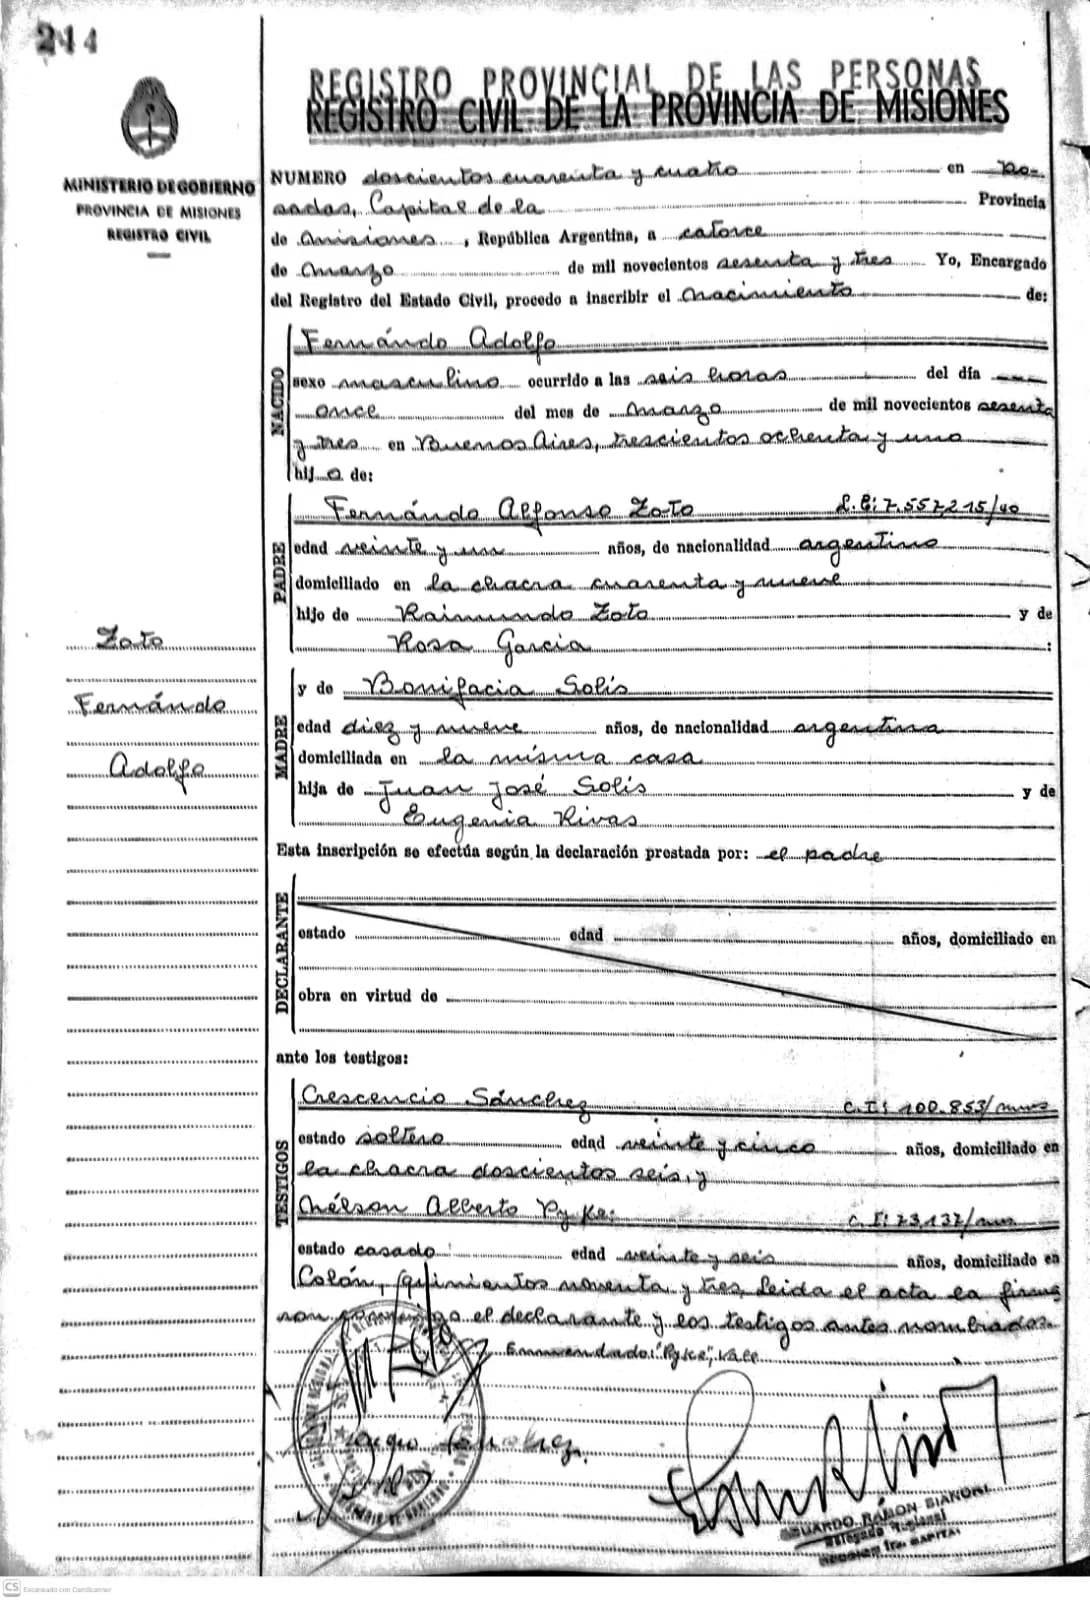 244
MINISTERIO DE GOBIERNO
PROVINCIA DE MISIONES
REGISTRO CIVIL
REGISTRO PROVINCIAL DE LAS PERSONAS
REGISTRO CIVIL DE LA PROVINCIA DE MISIONES
NUMERO doscientos cuarenta y cuatro en Po-
sadas, Capital de la Provincia
de Misiones, República Argentina, a catorce
de Marzo de mil novecientos sesenta y tres Yo, Encargado
del Registro del Estado Civil, procedo a inscribir el Nacimiento de:
NACIDO
Fernándo Adolfo
sexo masculino ocurrido a las seis horas del día
once del mes de Marzo de mil novecientos sesenta
y tres en Buenos Aires, trescientos ochenta y uno
hij o de:
PADRE
Fernándo Alfonso Zoto L.E: 7.557.215/40
edad veinte y un años, de nacionalidad argentino
domiciliado en la chacra cuarenta y nueve
hijo de Raimundo Zoto y de
Rosa Garcia :
Zoto
Fernándo
Adolfo
MADRE
y de Bonifacia Solís
edad diez y nueve años, de nacionalidad argentina
domiciliada en la mísma casa
hija de Juan José Solís y de
Eugenia Rivas
Esta inscripción se efectúa según la declaración prestada por: el padre
DECLARANTE
estado edad años, domiciliado en
obra en virtud de
ante los testigos:
TESTIGOS
Crescencio Sánchez C.I: 100.853/mnes
estado soltero edad veinte y cinco años, domiciliado en
la chacra doscientos seis, y
Nélson Alberto Pyke: C.I: 73.137/mns
estado casado edad veinte y seis años, domiciliado en
Colón, quinientos noventa y tres, Leida el acta la firma
el declarante y los testigos antes nombrados.
Enmendado: "Pyke", Vale
EDUARDO RAMON BIANCHI
Delegado Regional
CS Escaneado con CamScanner